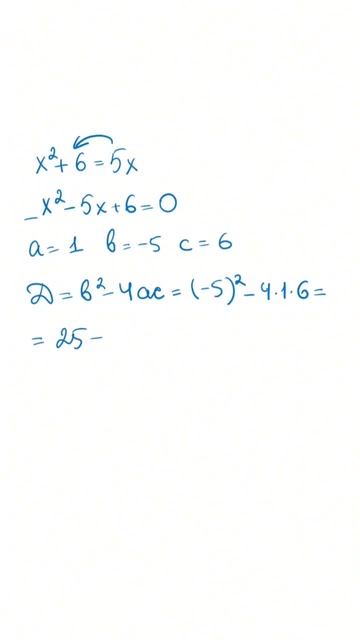 x² + 6 = 5x
_x² - 5x + 6 = 0
a = 1 b = -5 c = 6
D = b² - 4ac = (-5)² - 4·1·6 =
= 25 -